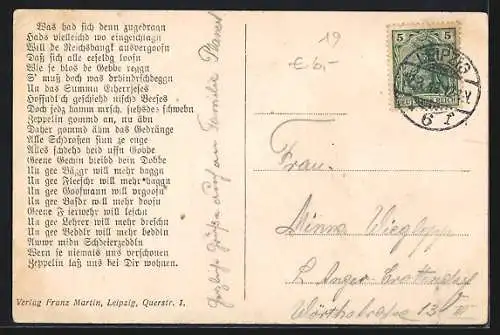 Was had sich denn zugedragn
Hads vielleichd wo eingeichlagn
Will de Reichsbangk ausvergoofn
Daß sich alle eefeldg loofn
Wie se blos de Gebbe reggn
S' muß doch was drhindrschdeggn
Un das Summa
geschiehd nischd Beeses
Doch jedz hamm mrsch, siehsdes schwebn
Zeppelin gommd an, nu äbn
Daher gommd ähm das Gedränge
Alle Schdroßen sinn ze enge
Alles schdehd heid uffn Gobbe
Geene Gechin bleibd bein Dobbe
Un gee Bäzgr will mehr baggn
Un gee Fleeschr will mehr haggn
Un gee Goofmann will vrgoofn
Un gee Basdr will mehr doofn
Geene will leschn
Un gee Lehrer will mehr dreschn
Un gee Beddlr will mehr beddln
Auwr midn Schdeierzeddln
Wern se niemals uns verschonen
Zeppelin laß uns bei Dir wohnen.
Verlag Franz Martin, Leipzig, Querstr. 1.
Herzliche Grüße auch an Familie Planert
19
€ 6,-
5 5
DEUTSCHES REICH
LEIPZIG
Frau
Minna
L. Anger-Crottendorf
Wörthstrasse 13 III